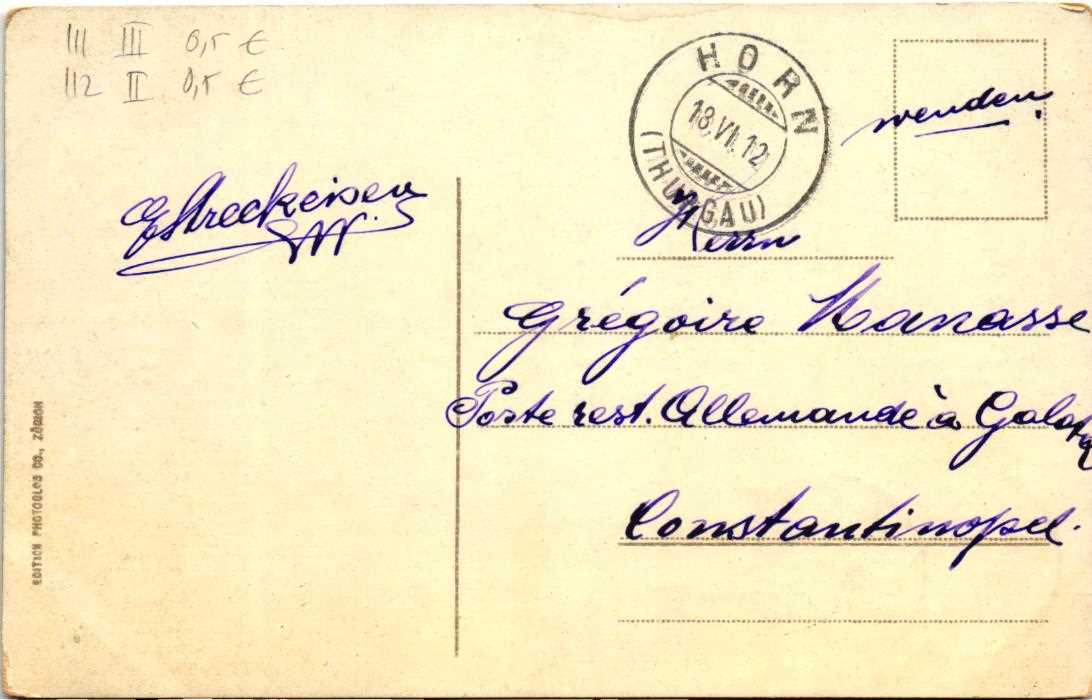 111 III 0,5 €
112 II 0,5 €
HORN
18.VI.12
(THURGAU)
wenden.
EStreckeisen
Herrn
Grégoire Manasse
Poste rest. Allemande à Galata
Constantinopel.
EDITION PHOTOGLOB CO., ZÜRICH